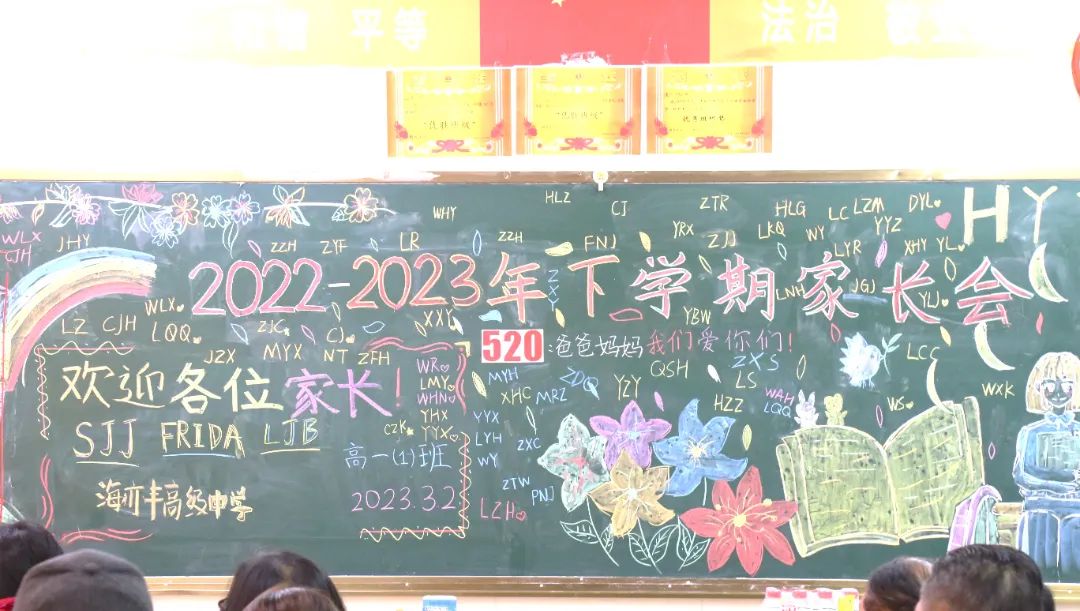 平等
法治
"优胜班级"
"优胜班级"
HLZ
CJ
ZTR
HLG
LC
LZM
DYL
HY
WHY
WLX
CJH
JHY
ZZH
ZYF
LR
ZZH
FNJ
YRX
ZJJ
LKQ
WY
YYZ
LYR
XHY
YL
2022-2023年下学期家长会
ZXY
LNH
JGJ
YLJ
WLX
LZ
CJH
LQQ
ZJC
CJ
XXY
YBW
520:爸爸妈妈我们爱你们!
JZX
MYX
NT
ZFH
QSH
ZXS
LS
LCC
WXK
欢迎各位家长!
WR
LMY
WHN
YHX
YYX
CZK
MYH
XHC
MRZ
ZDQ
YZY
HZZ
WAH
LQQ
WS
SJJ FRIDA LJB
高一(1)班
YYX
LYH
WY
ZXC
ZTW
PNJ
海亦丰高级中学
2023.3.2
LZH